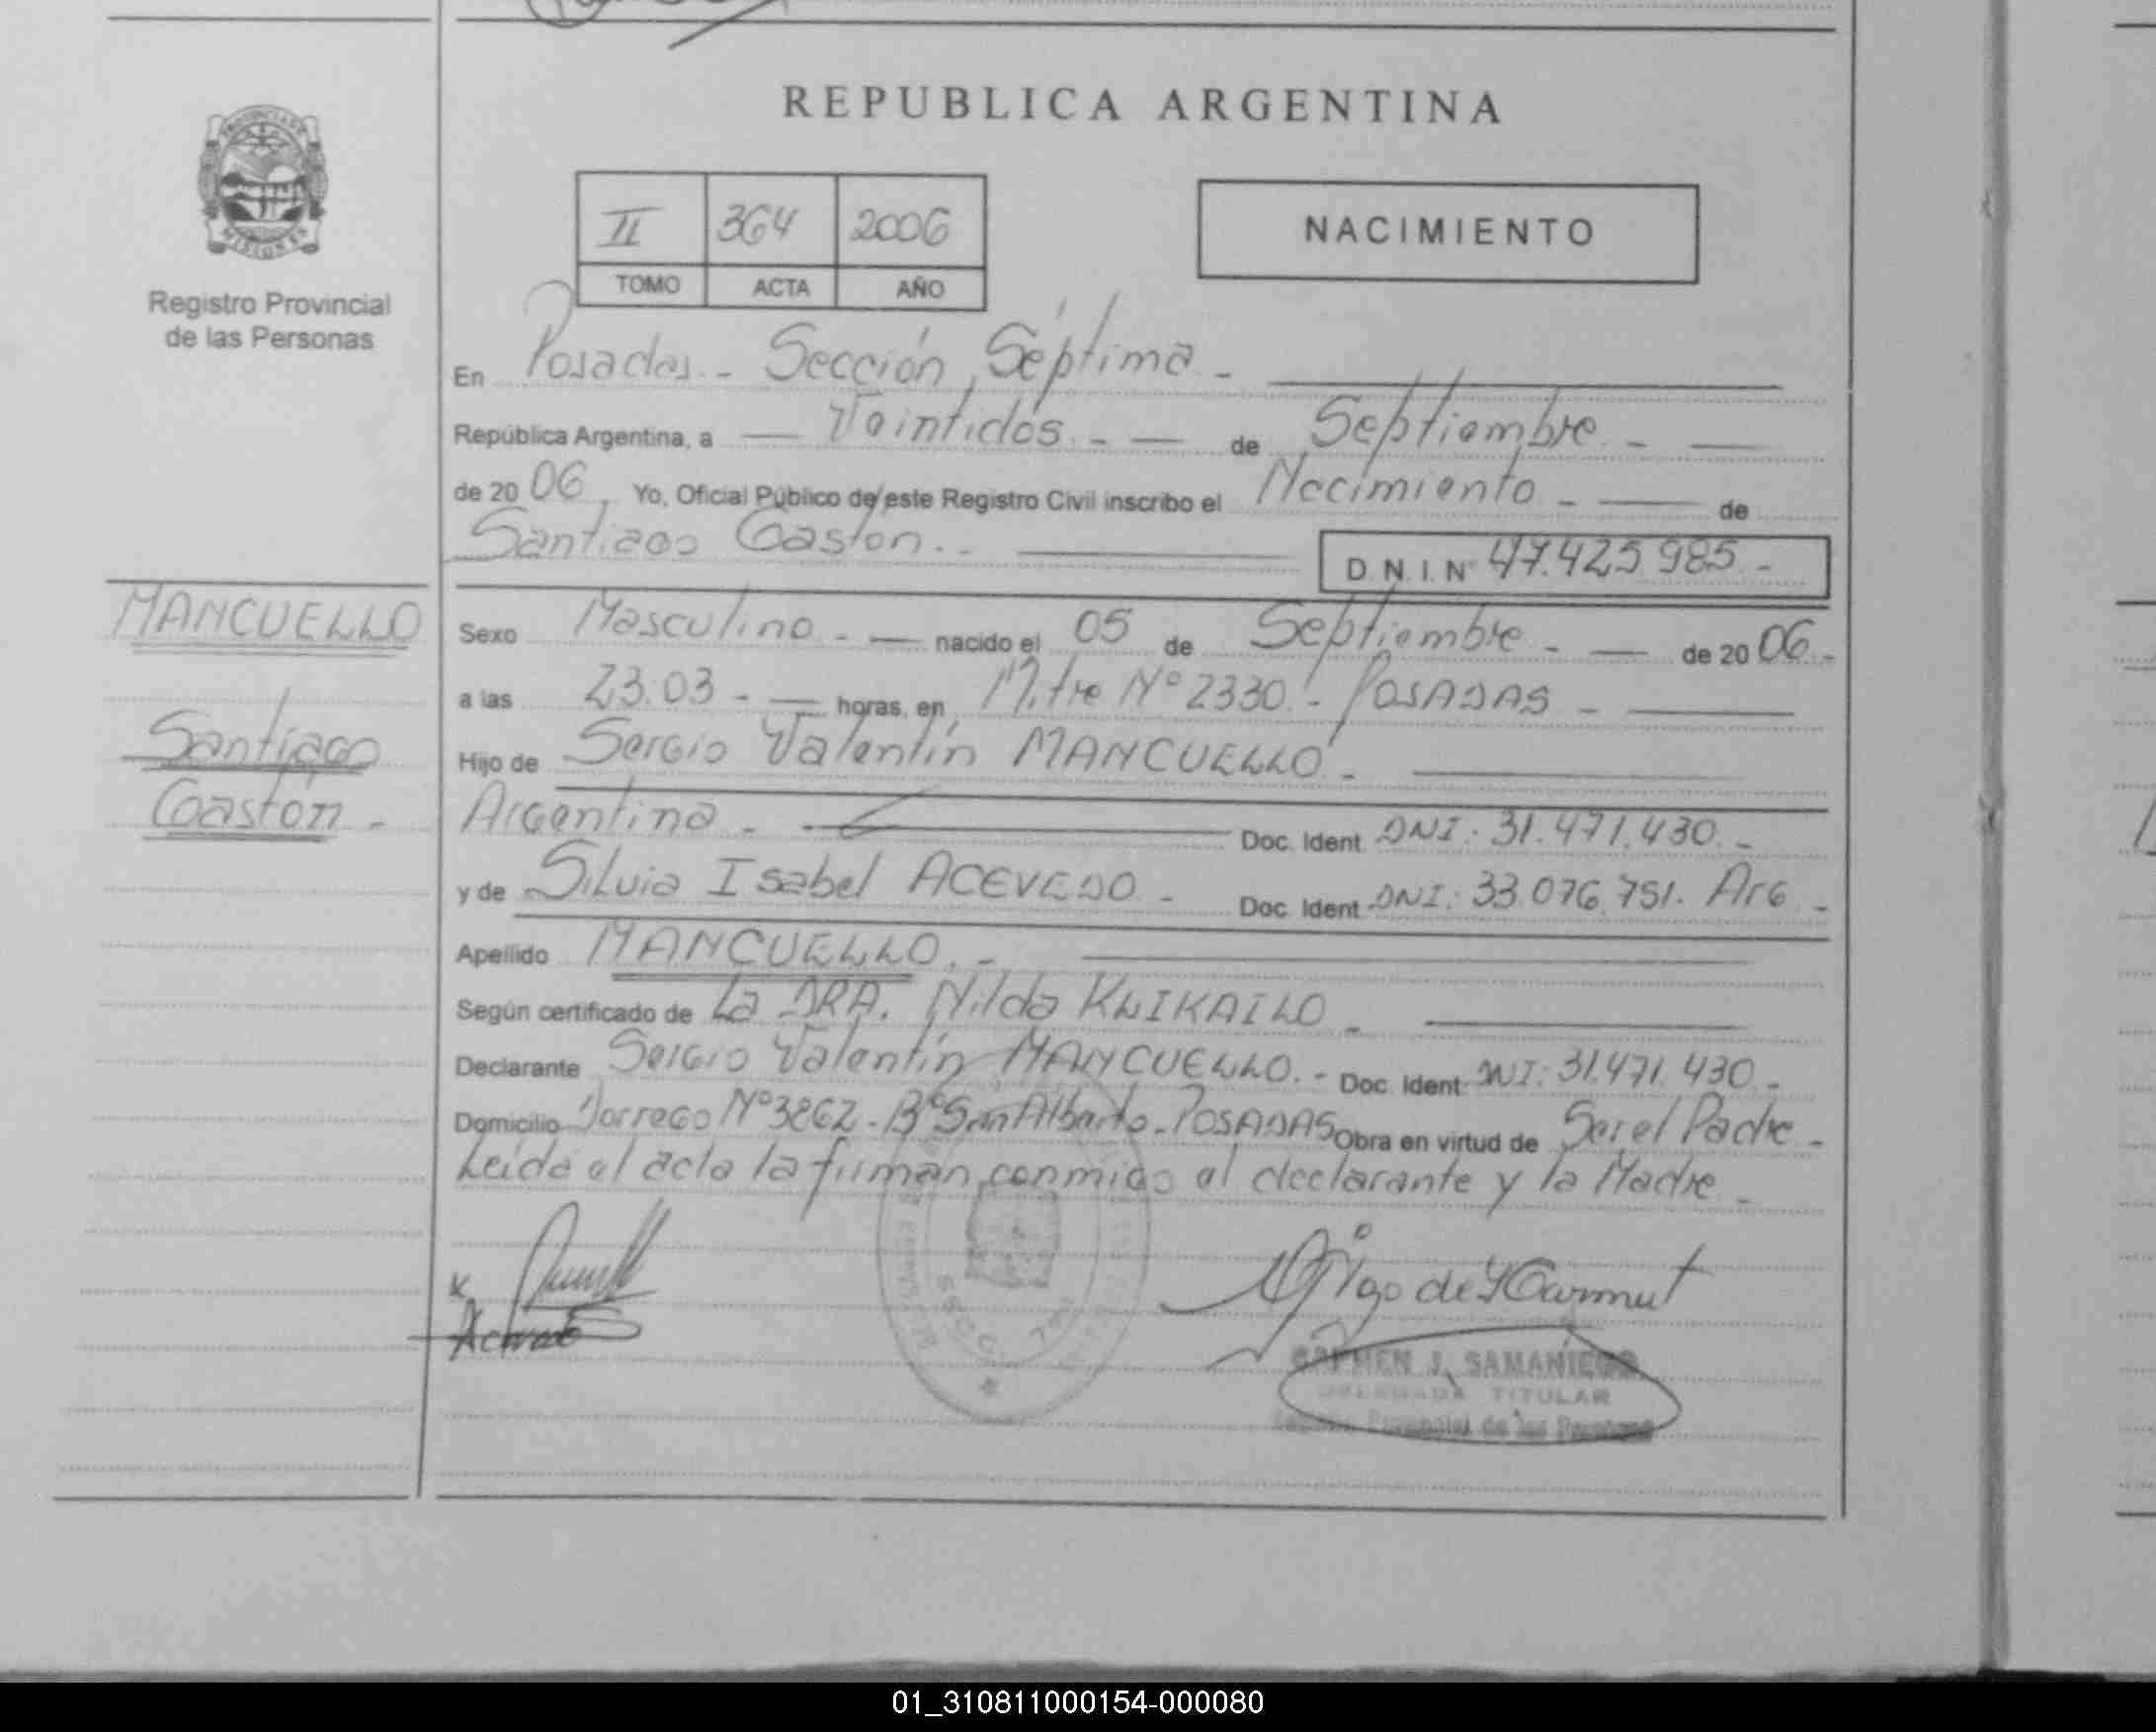 REPUBLICA ARGENTINA
PROVINCIA DE
MISIONES
Registro Provincial
de las Personas
II 364 2006
TOMO ACTA AÑO
NACIMIENTO
En Posadas.- Sección Séptima -
República Argentina, a — Veintidós. - — de Septiembre. - —
de 20 06, Yo, Oficial Público de este Registro Civil inscribo el Nacimiento - — de
Santiago Gaston. - D.N.I. Nº 47.425.985.-
MANCUELLO
Santiago
Gastón -
Sexo Masculino - — nacido el 05 de Septiembre - — de 20 06.-
a las 23:03 - — horas, en Mitre Nº 2330.- POSADAS -
Hijo de Sergio Valentín MANCUELLO -
Argentino - Doc. Ident. DNI: 31.471.430.-
y de Silvia Isabel ACEVEDO - Doc. Ident. DNI: 33.076.751. Arg -
Apellido MANCUELLO. -
Según certificado de La DRA. Nilda KLIKAILO -
Declarante Sergio Valentín MANCUELLO. - Doc. Ident. DNI: 31.471.430 -
Domicilio Dorrego Nº 3862 - Bº San Alberto - POSADAS Obra en virtud de Ser el Padre -
Leída el acta la firman conmigo el declarante y la Madre -
CARMEN J. SAMANIEGO
DELEGADA TITULAR
Registro Provincial de las Personas
01_310811000154-000080